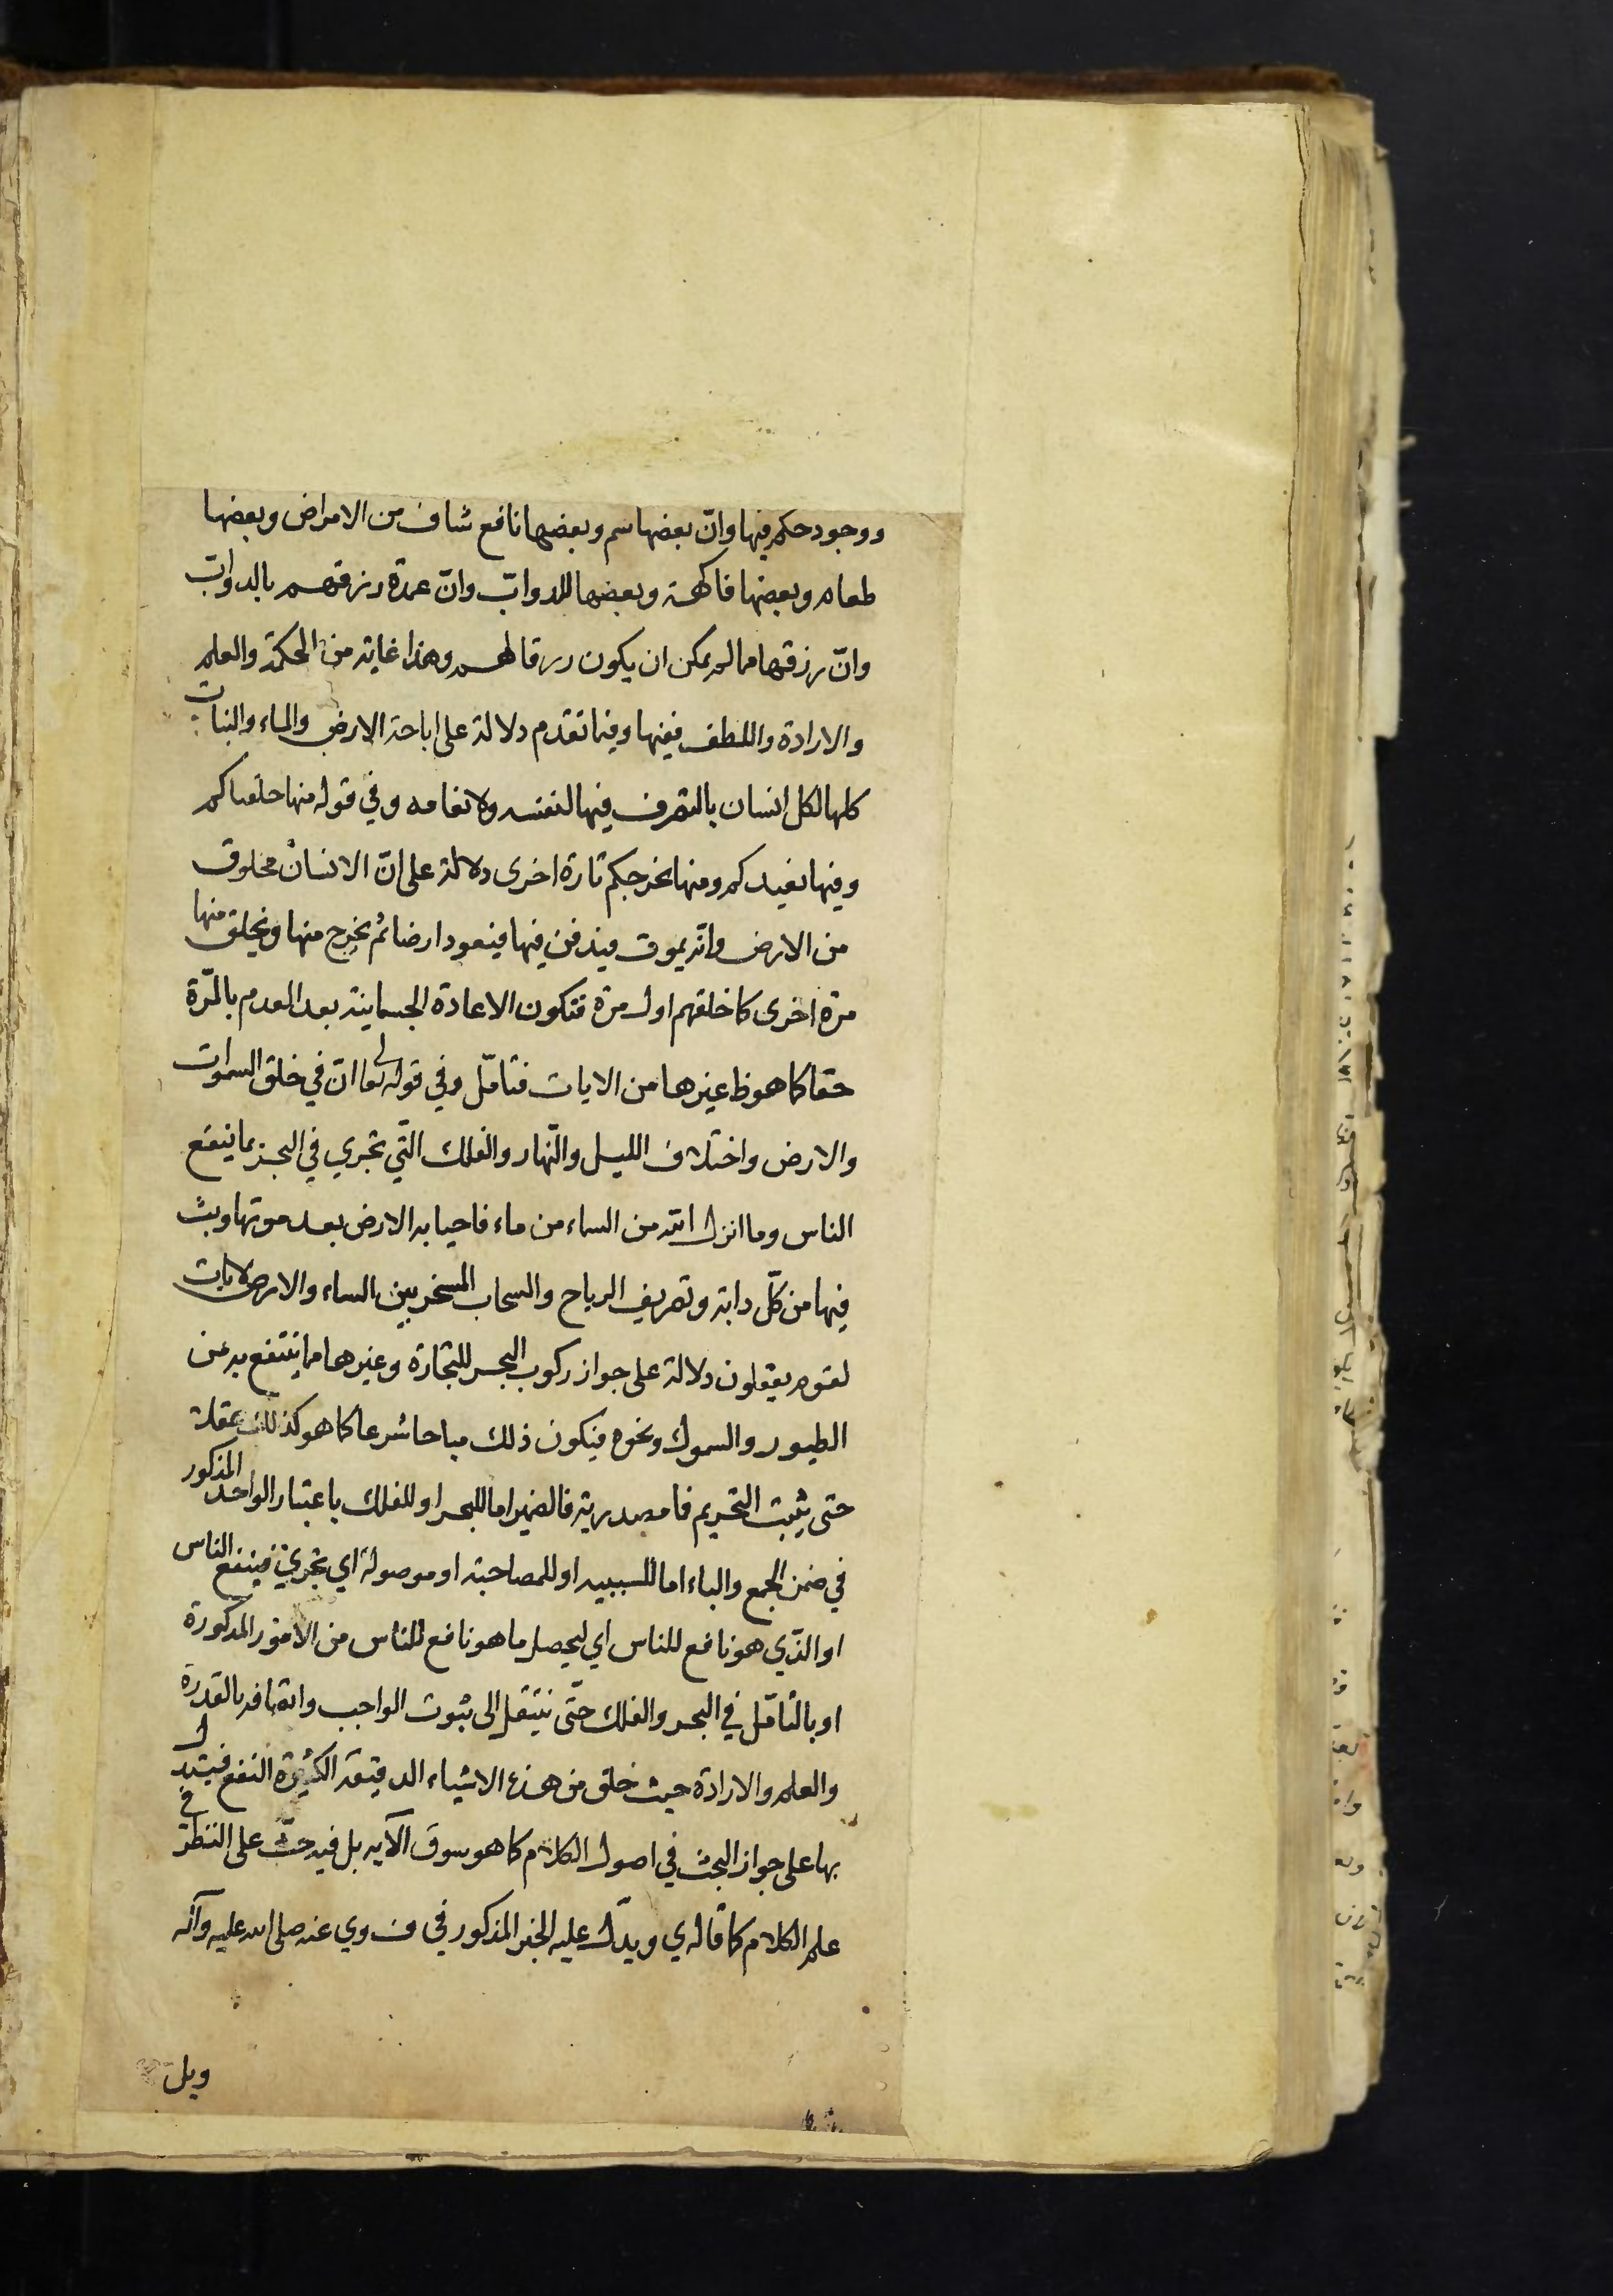 ووجود حكم فيها وانّ بعضها سم وبعضها نافع شاف من الامراض وبعضها
طعام وبعضها فاكهة وبعضها للدوابّ وانّ عمدة رزقهم بالدوابّ
وانّ رزقها مما لم يمكن ان يكون رزقا لهم وهذا غاية من الحكمة والعلم
والارادة واللطف ففيها وفيما تقدم دلالة على اباحة الارض والماء والنبات
كلها لكل انسان بالتصرف فيها لنفسه ولانعامه وفي قوله منها خلقناكم
وفيها نعيدكم ومنها نخرجكم تارة اخرى دلالة على انّ الانسان مخلوق
من الارض وانه يموت فيدفن فيها فيعود ارضا ثم يخرج منها ويخلق منها
مرة اخرى كما خلقهم اول مرة فتكون الاعادة الجسمانية بعد العدم بالمرّة
حقا كما هو ظ غيرها من الايات فتامّل وفي قوله تعالى انّ في خلق السموات
والارض واختلاف الليل والنّهار والفلك التّي تجري في البحر بما ينفع
الناس وما انزل الله من السماء من ماء فاحيا به الارض بعد موتها وبثّ
فيها من كلّ دابة وتصريف الرياح والسحاب المسخر بين السماء والارض لايات
لقوم يعقلون دلالة على جواز ركوب البحر للتجارة وغيرها مما ينتفع به من
الطيور والسموك ونحوه فيكون ذلك مباحا شرعا كما هو كذلك عقلا
حتى يثبت التحريم فما مصدرية فالضمير اما للبحر او للفلك باعتبار الواحد المذكور
في ضمن الجمع والباء اما للسببيه او للمصاحبة او موصولة اي تجري فينفع الناس
او الذّي هو نافع للناس اي ليحصل ما هو نافع للناس من الامور المذكورة
او بالتامّل في البحر والفلك حتّى ينتقل الى ثبوت الواجب واتصافه بالقدرة
والعلم والارادة حيث خلق من هذه الاشياء الدقيقة الكثيرة النفع فيستدل
بها على جواز البحث في اصول الكلام كما هو سوق الآيه بل فيه حثّ على النظر في
علم الكلام كما قاله ي ويدّل عليه الخبر المذكور في ف وي عنه صلى الله عليه وآله
ويل